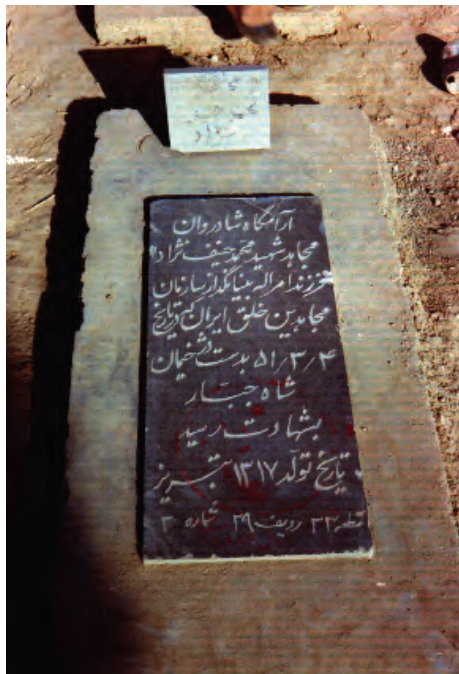 محمد حنیف
نژاد
آرامگاه شادروان
مجاهد شهید محمد حنیف نژاد
فرزند امراله بنیانگذار سازمان
مجاهدین خلق ایران که در تاریخ
۵۱/۳/۴ بدست دژخیمان
شاه جبار
بشهادت رسید
تاریخ تولد ۱۳۱۷ تبریز
قطعه ۳۳ ردیف ۲۹ شماره ۳